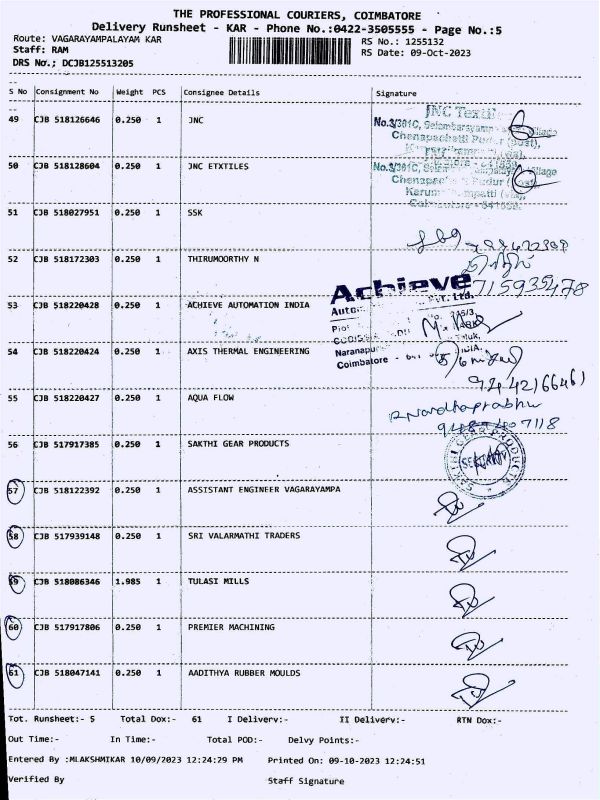 THE PROFESSIONAL COURIERS, COIMBATORE
Delivery Runsheet - KAR - Phone No.:0422-3505555 - Page No.:5
Route: VAGARAYAMPALAYAM KAR RS No.: 1255132
Staff: RAM RS Date: 09-Oct-2023
DRS No.; DCJB125513205
S No Consignment No Weight PCS Consignee Details Signature
49 CJB 518126646 0.250 1 JNC
JNC Textil
No.3/301C,
Chenapachetti Pudur (post),
50 CJB 518128604 0.250 1 JNC ETXTILES
No.3/301C,
51 CJB 518027951 0.250 1 SSK
52 CJB 518172303 0.250 1 THIRUMOORTHY N
Achieve
Pvt. Ltd.
715935478
53 CJB 518220428 0.250 1 ACHIEVE AUTOMATION INDIA
54 CJB 518220424 0.250 1 AXIS THERMAL ENGINEERING
Coimbatore -
9442166461
55 CJB 518220427 0.250 1 AQUA FLOW
56 CJB 517917385 0.250 1 SAKTHI GEAR PRODUCTS
SAKTHI GEAR PRODUCTS
57 CJB 518122392 0.250 1 ASSISTANT ENGINEER VAGARAYAMPA
58 CJB 517939148 0.250 1 SRI VALARMATHI TRADERS
59 CJB 518086346 1.985 1 TULASI MILLS
60 CJB 517917806 0.250 1 PREMIER MACHINING
61 CJB 518047141 0.250 1 AADITHYA RUBBER MOULDS
Tot. Runsheet:- 5 Total Dox:- 61 I Delivery:- II Delivery:- RTN Dox:-
Out Time:- In Time:- Total POD:- Delvy Points:-
Entered By :MLAKSHMIKAR 10/09/2023 12:24:29 PM Printed On: 09-10-2023 12:24:51
Verified By Staff Signature